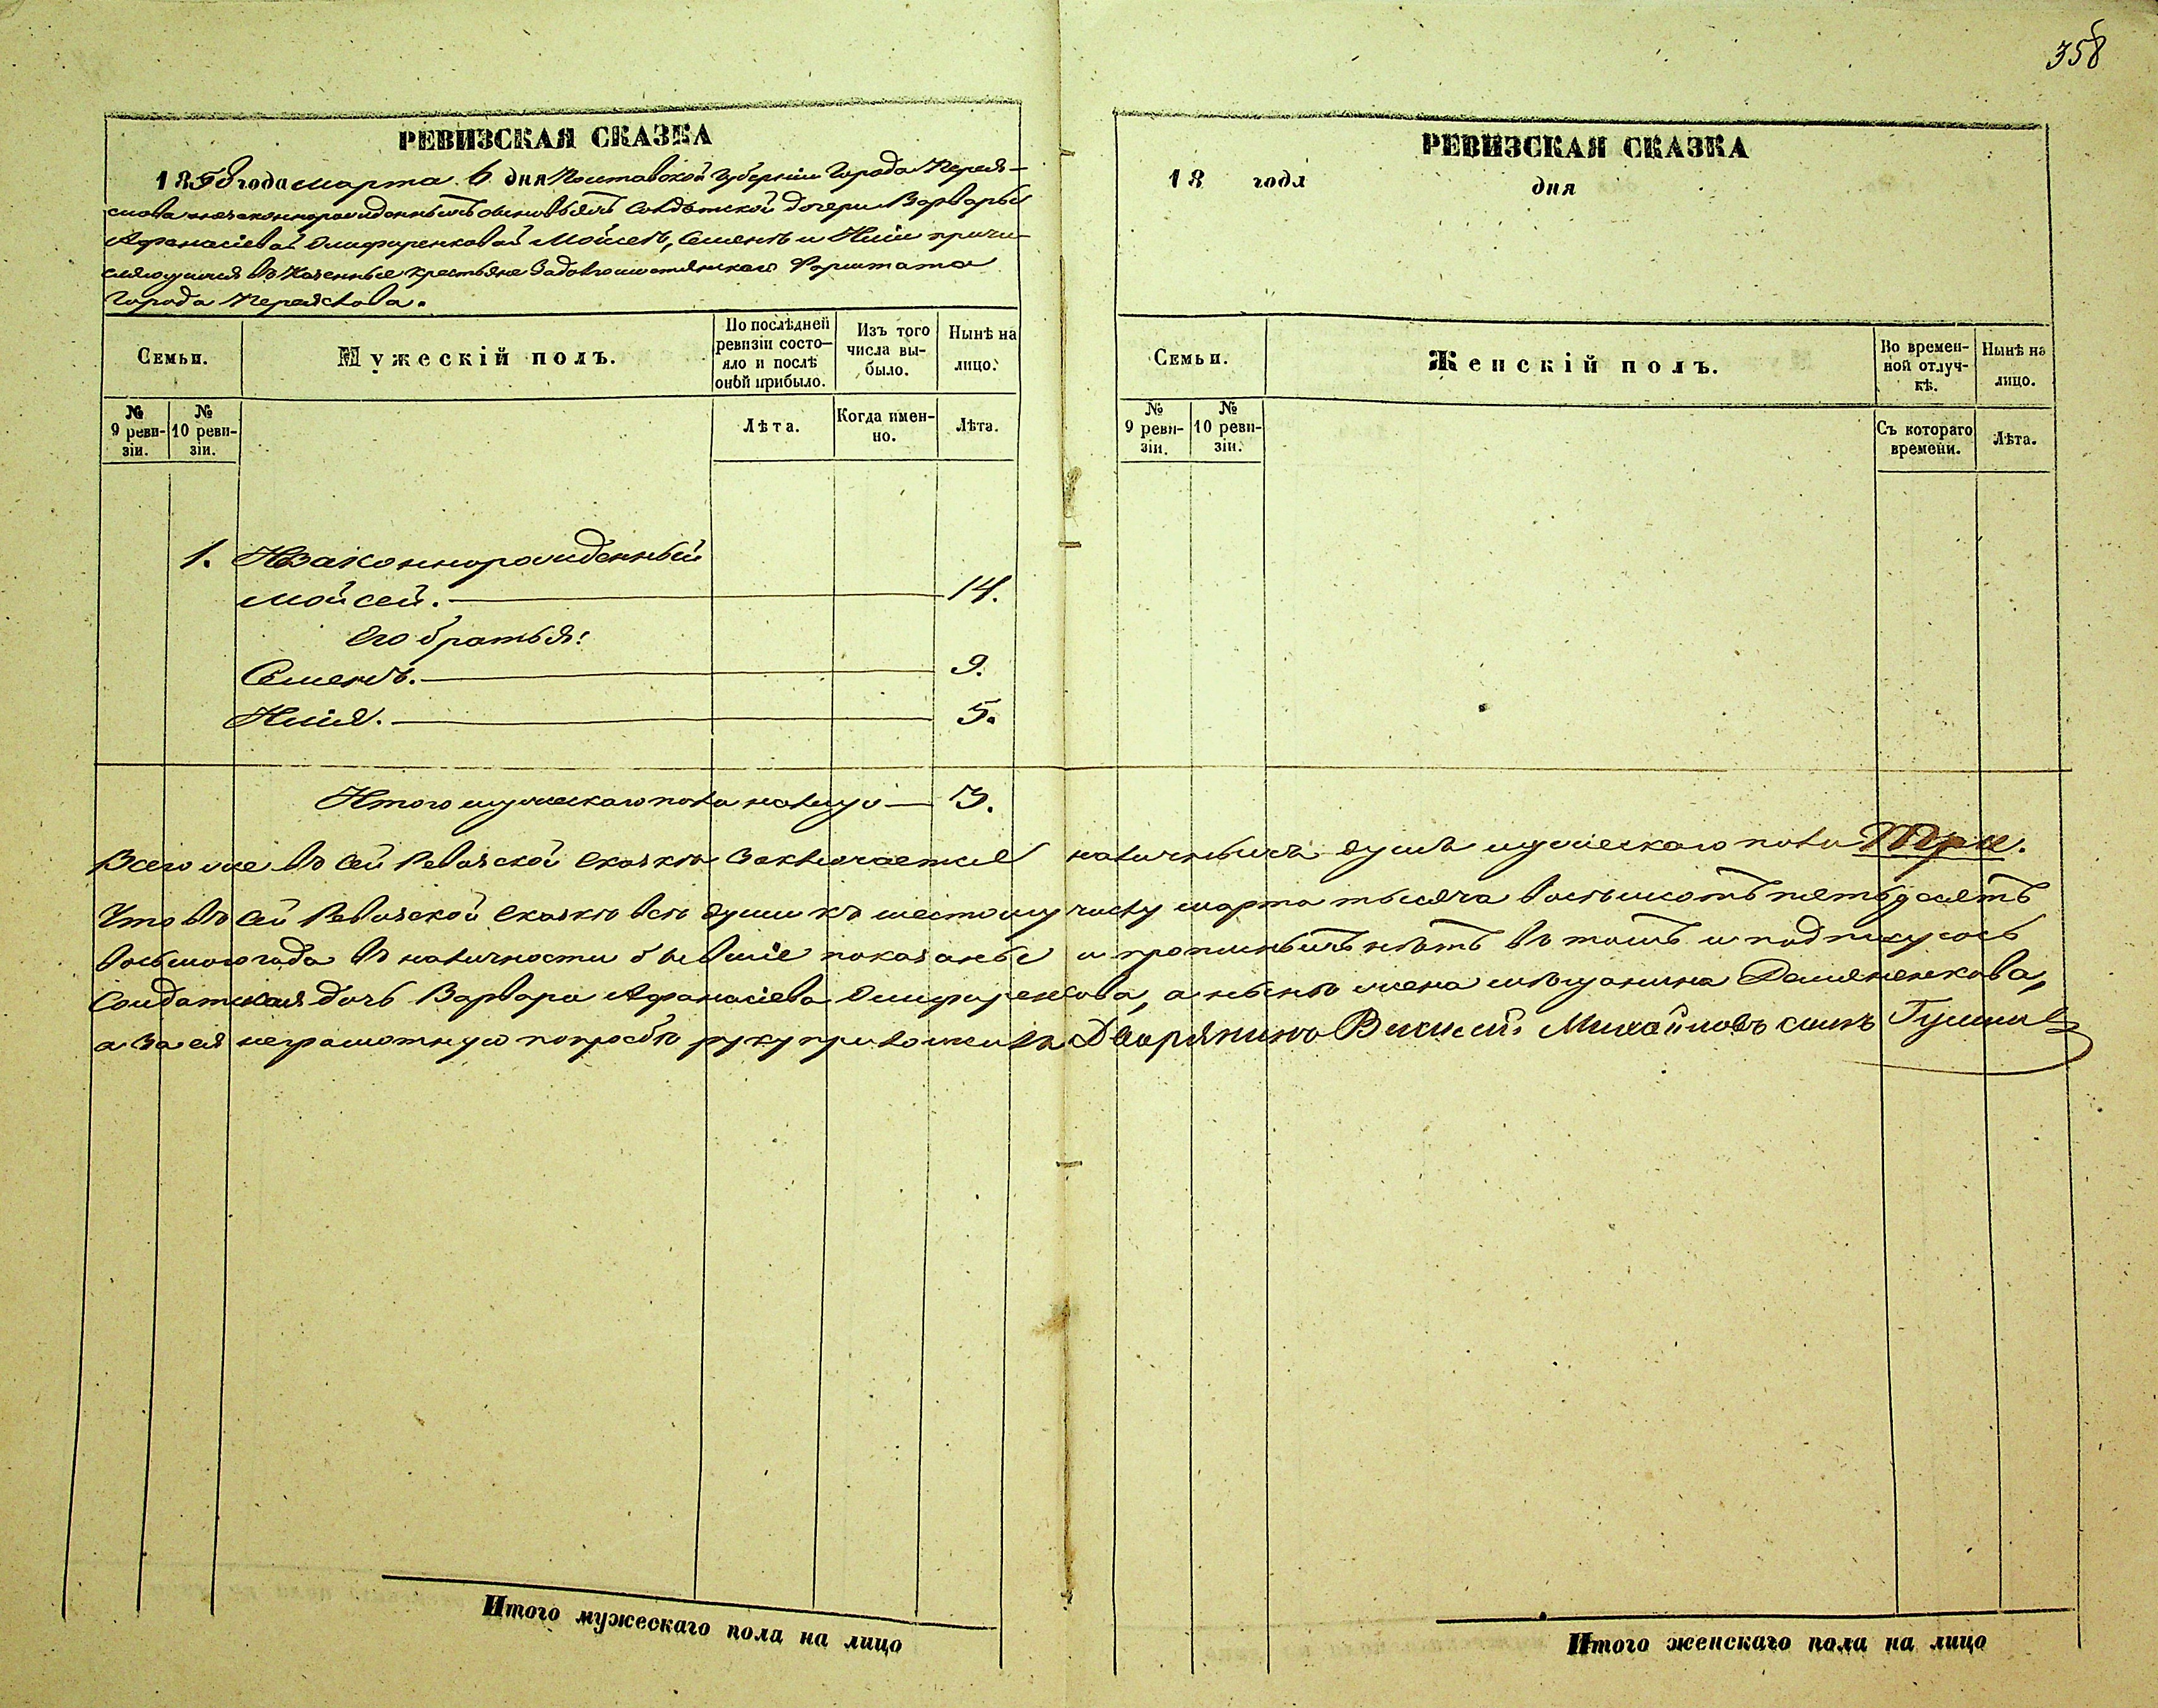 358
РЕВИЗСКАЯ СКАЗКА
1858 года марта 6 дня Полтавской Губерніи Города Перея-
слова незаконнорожденнымъ сыновьямъ Солдатской дочери Варвары
Афанасіевой Олифиренковой Мойсею, Семену и Иліи причи-
сляющимся въ Казенные крестьяне Задолгомостянскаго Форштата
Города Переяслова.
Семьи.
Мужескій полъ.
По послѣдней
ревизіи состо-
яло и послѣ
оной прибыло.
Изъ того
числа вы-
было.
Нынѣ на
лицо.
№
9 реви-
зіи.
№
10 реви-
зіи.
Лѣта.
Когда имен-
но.
Лѣта.
1. Незаконнорожденный
Мойсей. 14.
Его братья:
Семенъ. 9.
Илія. 5.
Итого мужескаго пола налицо 3.
РЕВИЗСКАЯ СКАЗКА
18 года дня
Семьи.
Женскій полъ.
Во времен-
ной отлуч-
кѣ.
Нынѣ на
лицо.
№
9 реви-
зіи.
№
10 реви-
зіи.
Съ котораго
времени.
Лѣта.
Всего же въ сей Ревизской сказкѣ заключается наличныхъ душъ мужескаго пола Три.
Что въ сей Ревизской сказкѣ всѣ души къ шестому числу марта тысяча восьмсотъ пятьдесятъ
восьмого года въ наличности бывшіе показаны и прописныхъ нѣтъ въ томъ и подпишусь
Солдатская дочь Варвара Афанасіева Олифиренкова, а нынѣ жена мѣщанина Демяненкова,
а за ея неграмотную по просьбѣ руку приложилъ Дворянинъ Михайловъ сынъ
Итого мужескаго пола на лицо
Итого женскаго пола на лицо